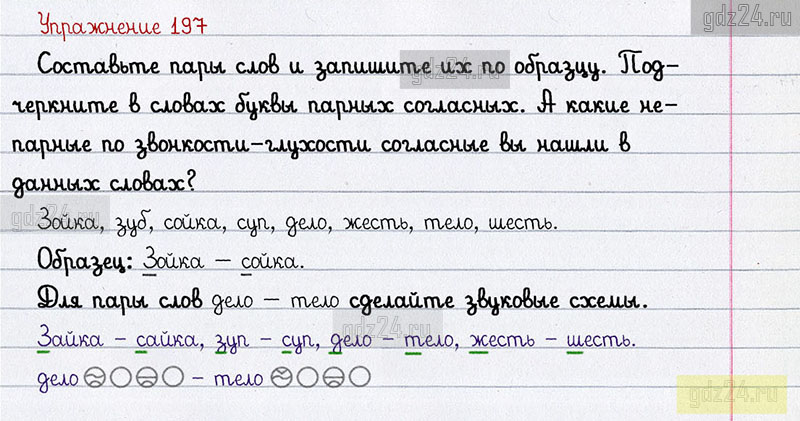 gdz24.ru
Упражнение 197
Составьте пары слов и запишите их по образцу. Под-
gdz24.ru
черкните в словах буквы парных согласных. А какие не-
парные по звонкости-глухости согласные вы нашли в
данных словах?
gdz24.ru
Зойка, зуб, сойка, суп, дело, жесть, тело, шесть.
Образец: Зойка – сойка.
Для пары слов дело – тело сделайте звуковые схемы.
gdz24.ru
Зайка – сайка, зуп – суп, дело – тело, жесть – шесть.
дело – тело
gdz24.ru